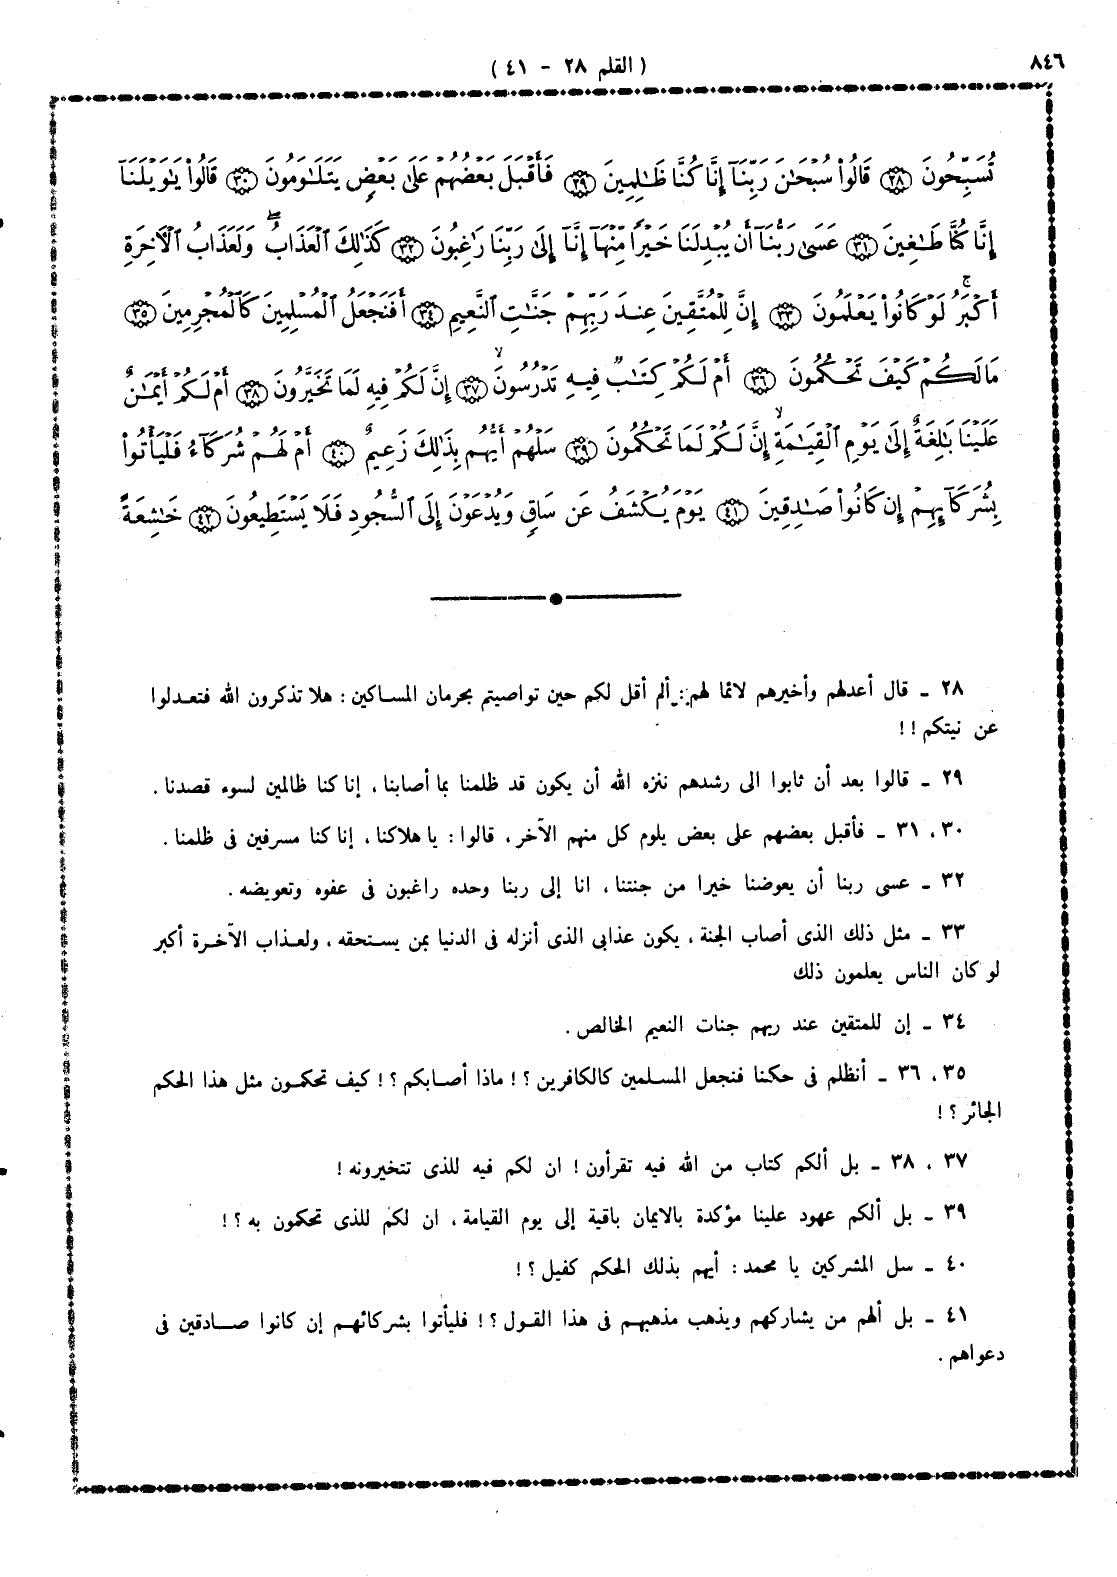 ٨٤٦
( القلم ٢٨ - ٤١ )
تُسَبِّحُونَ ٢٨ قَالُوا۟ سُبْحَـٰنَ رَبِّنَآ إِنَّا كُنَّا ظَـٰلِمِينَ ٢٩ فَأَقْبَلَ بَعْضُهُمْ عَلَىٰ بَعْضٍ يَتَلَـٰوَمُونَ ٣٠ قَالُوا۟ يَـٰوَيْلَنَآ
إِنَّا كُنَّا طَـٰغِينَ ٣١ عَسَىٰ رَبُّنَآ أَن يُبْدِلَنَا خَيْرًا مِّنْهَآ إِنَّآ إِلَىٰ رَبِّنَا رَٰغِبُونَ ٣٢ كَذَٰلِكَ ٱلْعَذَابُ ۖ وَلَعَذَابُ ٱلْأَخِرَةِ
أَكْبَرُ ۚ لَوْ كَانُوا۟ يَعْلَمُونَ ٣٣ إِنَّ لِلْمُتَّقِينَ عِندَ رَبِّهِمْ جَنَّـٰتِ ٱلنَّعِيمِ ٣٤ أَفَنَجْعَلُ ٱلْمُسْلِمِينَ كَٱلْمُجْرِمِينَ ٣٥
مَا لَكُمْ كَيْفَ تَحْكُمُونَ ٣٦ أَمْ لَكُمْ كِتَـٰبٌ فِيهِ تَدْرُسُونَ ۙ ٣٧ إِنَّ لَكُمْ فِيهِ لَمَا تَخَيَّرُونَ ٣٨ أَمْ لَكُمْ أَيْمَـٰنٌ
عَلَيْنَا بَـٰلِغَةٌ إِلَىٰ يَوْمِ ٱلْقِيَـٰمَةِ ۙ إِنَّ لَكُمْ لَمَا تَحْكُمُونَ ٣٩ سَلْهُمْ أَيُّهُم بِذَٰلِكَ زَعِيمٌ ٤٠ أَمْ لَهُمْ شُرَكَآءُ فَلْيَأْتُوا۟
بِشُرَكَآئِهِمْ إِن كَانُوا۟ صَـٰدِقِينَ ٤١ يَوْمَ يُكْشَفُ عَن سَاقٍ وَيُدْعَوْنَ إِلَى ٱلسُّجُودِ فَلَا يَسْتَطِيعُونَ ٤٢ خَـٰشِعَةً
٢٨ ـ قال أعدلهم وأخيرهم لائما لهم : ألم أقل لكم حين تواصيتم بحرمان المساكين : هلا تذكرون الله فتعدلوا
عن نيتكم ! !
٢٩ ـ قالوا بعد أن ثابوا الى رشدهم ننزه الله أن يكون قد ظلمنا بما أصابنا ، إنا كنا ظالمين لسوء قصدنا .
٣٠ ، ٣١ ـ فأقبل بعضهم على بعض يلوم كل منهم الآخر ، قالوا : يا هلاكنا ، إنا كنا مسرفين فى ظلمنا .
٣٢ ـ عسى ربنا أن يعوضنا خيرا من جنتنا ، انا إلى ربنا وحده راغبون فى عفوه وتعويضه .
٣٣ ـ مثل ذلك الذى أصاب الجنة ، يكون عذابى الذى أنزله فى الدنيا بمن يستحقه ، ولعذاب الآخرة أكبر
لو كان الناس يعلمون ذلك
٣٤ ـ إن للمتقين عند ربهم جنات النعيم الخالص .
٣٥ ، ٣٦ ـ أنظلم فى حكمنا فنجعل المسلمين كالكافرين ؟ ! ماذا أصابكم ؟ ! كيف تحكمون مثل هذا الحكم
الجائر ؟ !
٣٧ ، ٣٨ ـ بل ألكم كتاب من الله فيه تقرأون ! ان لكم فيه للذى تتخيرونه !
٣٩ ـ بل ألكم عهود علينا مؤكدة بالايمان باقية إلى يوم القيامة ، ان لكم للذى تحكمون به ؟ !
٤٠ ـ سل المشركين يا محمد : أيهم بذلك الحكم كفيل ؟ !
٤١ ـ بل ألهم من يشاركهم ويذهب مذهبهم فى هذا القول ؟ ! فليأتوا بشركائهم إن كانوا صادقين فى
دعواهم .